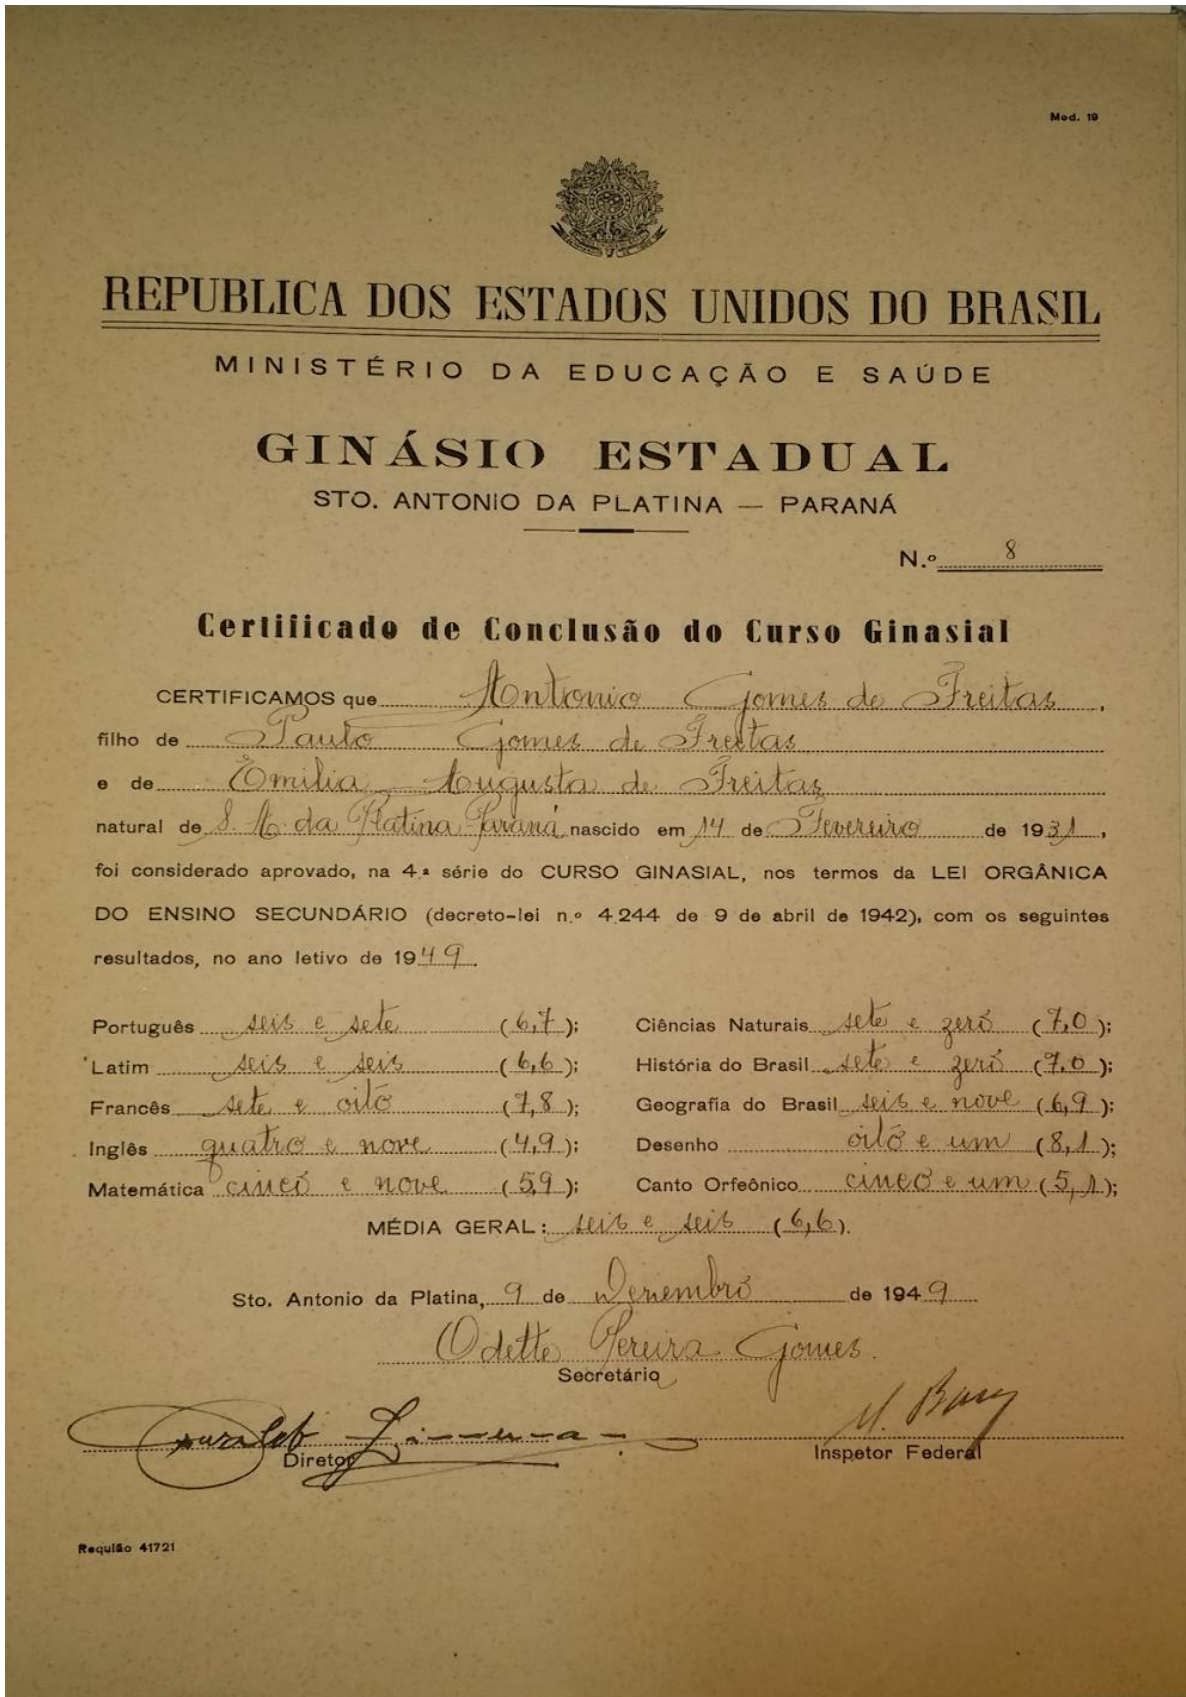 Mod. 19
REPUBLICA DOS ESTADOS UNIDOS DO BRASIL
MINISTÉRIO DA EDUCAÇÃO E SAÚDE
GINÁSIO ESTADUAL
STO. ANTONIO DA PLATINA — PARANÁ
N.º 8
Certificado de Conclusão do Curso Ginasial
CERTIFICAMOS que Antonio Gomes de Freitas,
filho de Paulo Gomes de Freitas
e de Emilia Augusta de Freitas
natural de S. A. da Platina-Paraná nascido em 14 de Fevereiro de 1931,
foi considerado aprovado, na 4.ª série do CURSO GINASIAL, nos termos da LEI ORGÂNICA
DO ENSINO SECUNDÁRIO (decreto-lei n.º 4.244 de 9 de abril de 1942), com os seguintes
resultados, no ano letivo de 1949.
Português seis e sete (6,7); Ciências Naturais sete e zero (7,0);
Latim seis e seis (6,6); História do Brasil sete e zero (7,0);
Francês sete e oito (7,8); Geografia do Brasil seis e nove (6,9);
Inglês quatro e nove (4,9); Desenho oito e um (8,1);
Matemática cinco e nove (5,9); Canto Orfeônico cinco e um (5,1);
MÉDIA GERAL: seis e seis (6,6).
Sto. Antonio da Platina, 9 de Dezembro de 1949
Odette Pereira Gomes.
Secretário
Diretor Inspetor Federal
Requião 41721